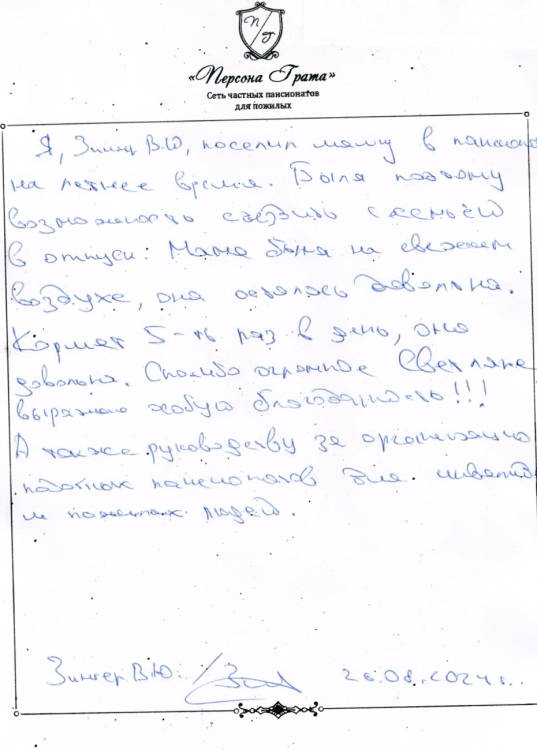 П/г
«Персона Грата»
Сеть частных пансионатов
для пожилых
Я, Зингер В.Ю, поселил маму в пансиона
на летнее время. Была поэтому
возможность съездить с семьёй
в отпуск. Мама была на свежем
воздухе, она осталась довольна.
Кормят 5-ть раз в день, она
довольна. Спасибо огромное Светлане
выражаю особую благодарность!!!
А также руководству за организацию
подобных пансионатов для инвалид
и пожилых людей.
Зингер В.Ю. 26.08.2024г.